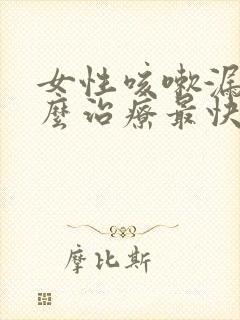 女性咳嗽漏
麼治療最快
摩比斯